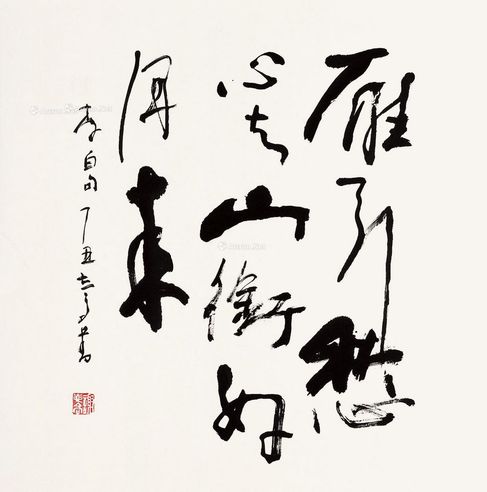 雁引愁
心去山銜好
月来
李白句丁丑